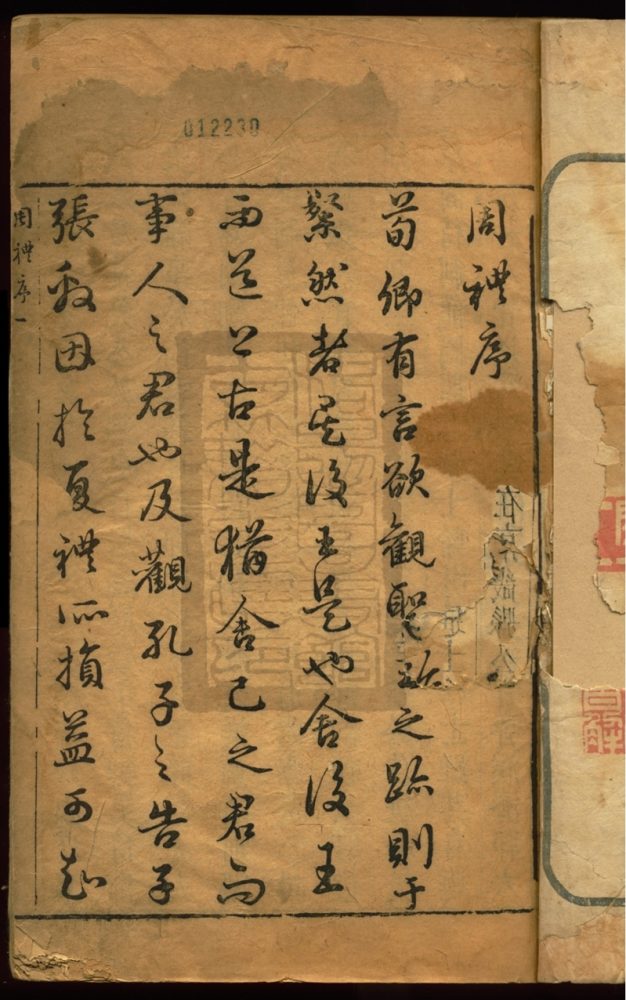 012230
周禮序
荀卿有言欲觀聖之跡則于
粲然者矣後王是也舍後王
而道上古是猶舍己之君而
事人之君也及觀孔子之告子
張殷因於夏禮所損益可知
周禮序一